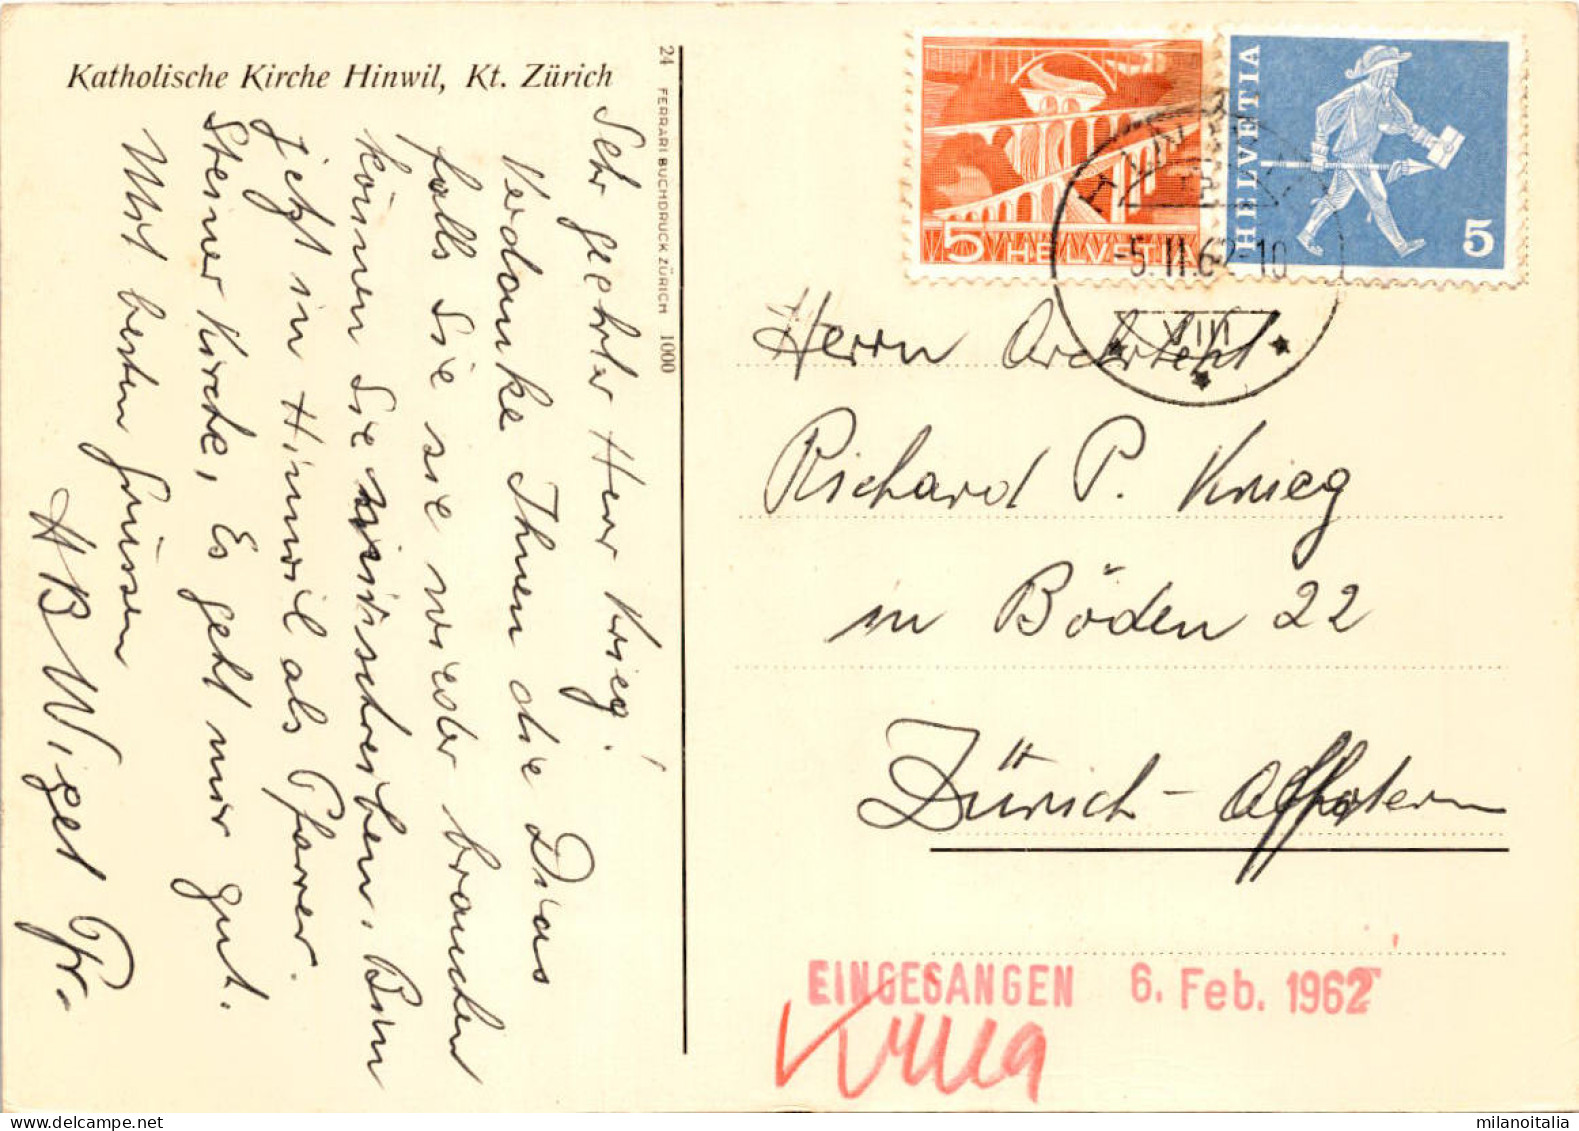 Katholische Kirche Hinwil, Kt. Zürich
24 FERRARI BUCHDRUCK ZÜRICH 1000
Sehr geehrter Herr Krieg!
Verdanke Ihnen die Dias
falls Sie sie wieder brauchen
können Sie mir schreiben. Bin
jetzt in Hinwil als Pfarrer.
Steiner Kirche, Es geht mir gut.
Mit besten Grüssen
HB Wiget Pfr.
5 HELVETIA
HELVETIA 5
HINWIL
-5.II.62-10
XIII
Herrn Architekt
Richard P. Krieg
in Böden 22
Zürich-Affoltern
EINGEGANGEN 6. Feb. 1962
milanoitalia